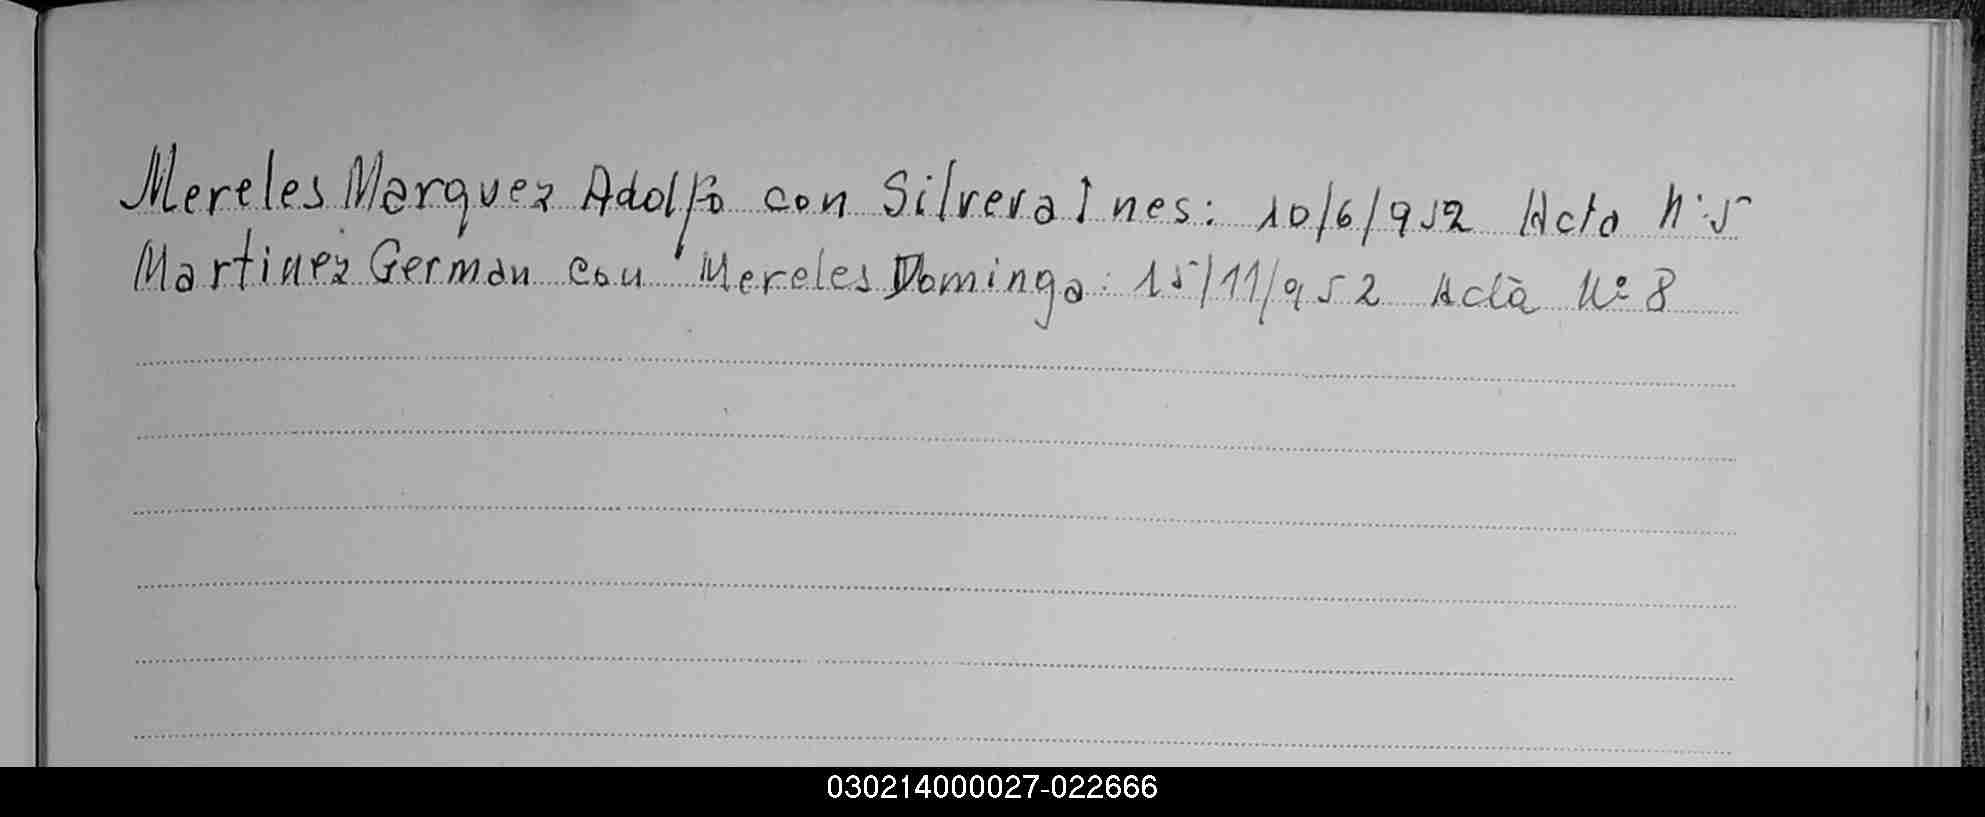 Mereles Marquez Adolfo con Silvera Ines: 10/6/952 Acta N: 5
Martinez German con Mereles Dominga: 15/11/952 Acta Nº 8
030214000027-022666